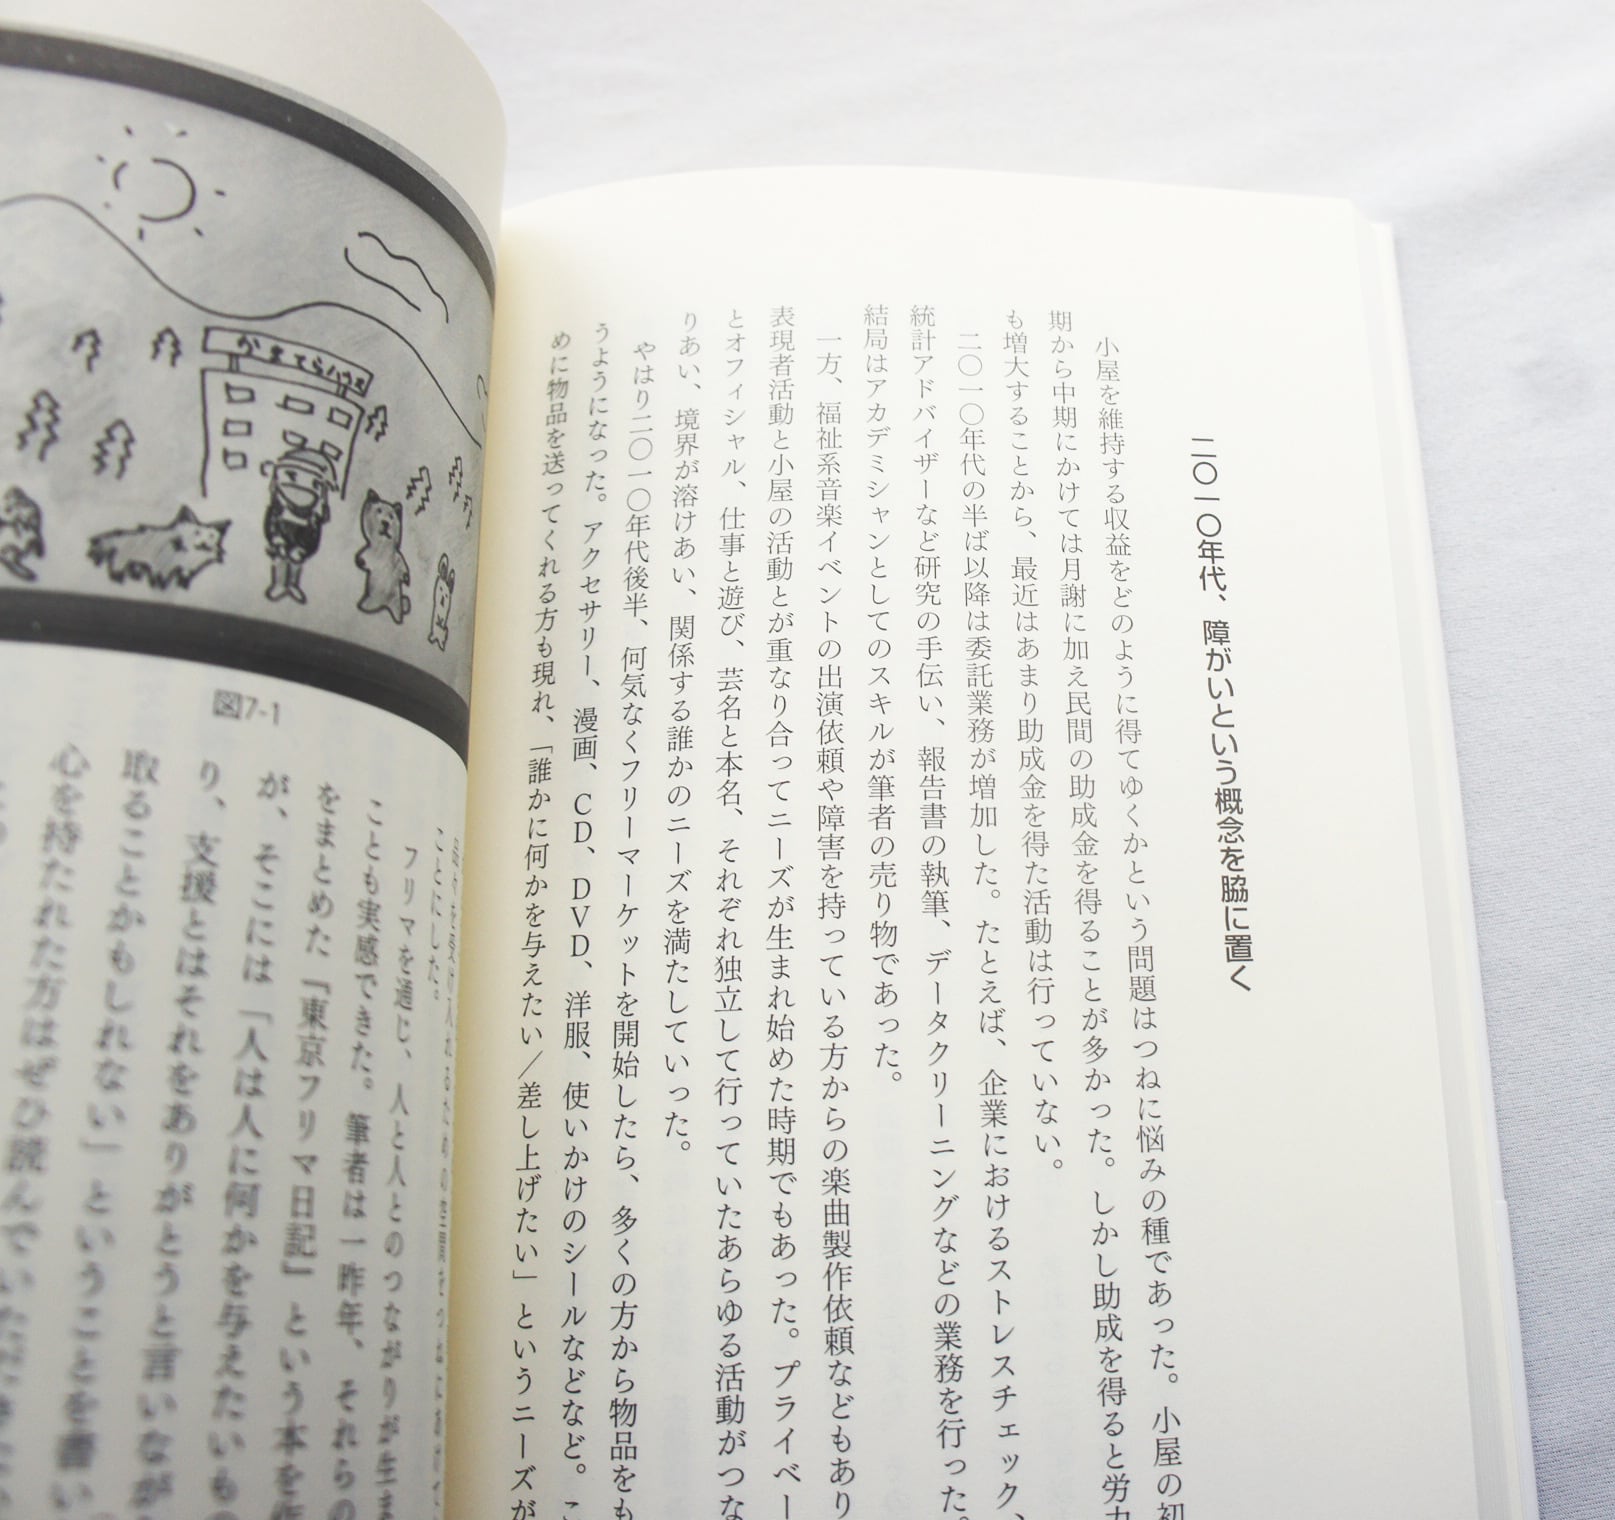 二〇一〇年代、障がいという概念を脇に置く
小屋を維持する収益をどのように得てゆくかという問題はつねに悩みの種であった。小屋の初
期から中期にかけては月謝に加え民間の助成金を得ることが多かった。しかし助成を得ると労力
も増大することから、最近はあまり助成金を得た活動は行っていない。
二〇一〇年代の半ば以降は委託業務が増加した。たとえば、企業におけるストレスチェック、
統計アドバイザーなど研究の手伝い、報告書の執筆、データクリーニングなどの業務を行った。
結局はアカデミシャンとしてのスキルが筆者の売り物であった。
一方、福祉系音楽イベントの出演依頼や障害を持っている方からの楽曲製作依頼などもあり
表現者活動と小屋の活動とが重なり合ってニーズが生まれ始めた時期でもあった。プライベー
とオフィシャル、仕事と遊び、芸名と本名、それぞれ独立して行っていたあらゆる活動がつな
りあい、境界が溶けあい、関係する誰かのニーズを満たしていった。
やはり二〇一〇年代後半、何気なくフリーマーケットを開始したら、多くの方から物品をも
うようになった。アクセサリー、漫画、CD、DVD、洋服、使いかけのシールなどなど。こ
めに物品を送ってくれる方も現れ、「誰かに何かを与えたい／差し上げたい」というニーズが
かまてらハウス
図7-1
を受け入れるための空間をつ
ことにした。
フリマを通じ、人と人とのつながりが生ま
ことも実感できた。筆者は一昨年、それらの
をまとめた『東京フリマ日記』という本を作
が、そこには「人は人に何かを与えたいもの
り、支援とはそれをありがとうと言いなが
取ることかもしれない」ということを書い
心を持たれた方はぜひ読んでいただきたい